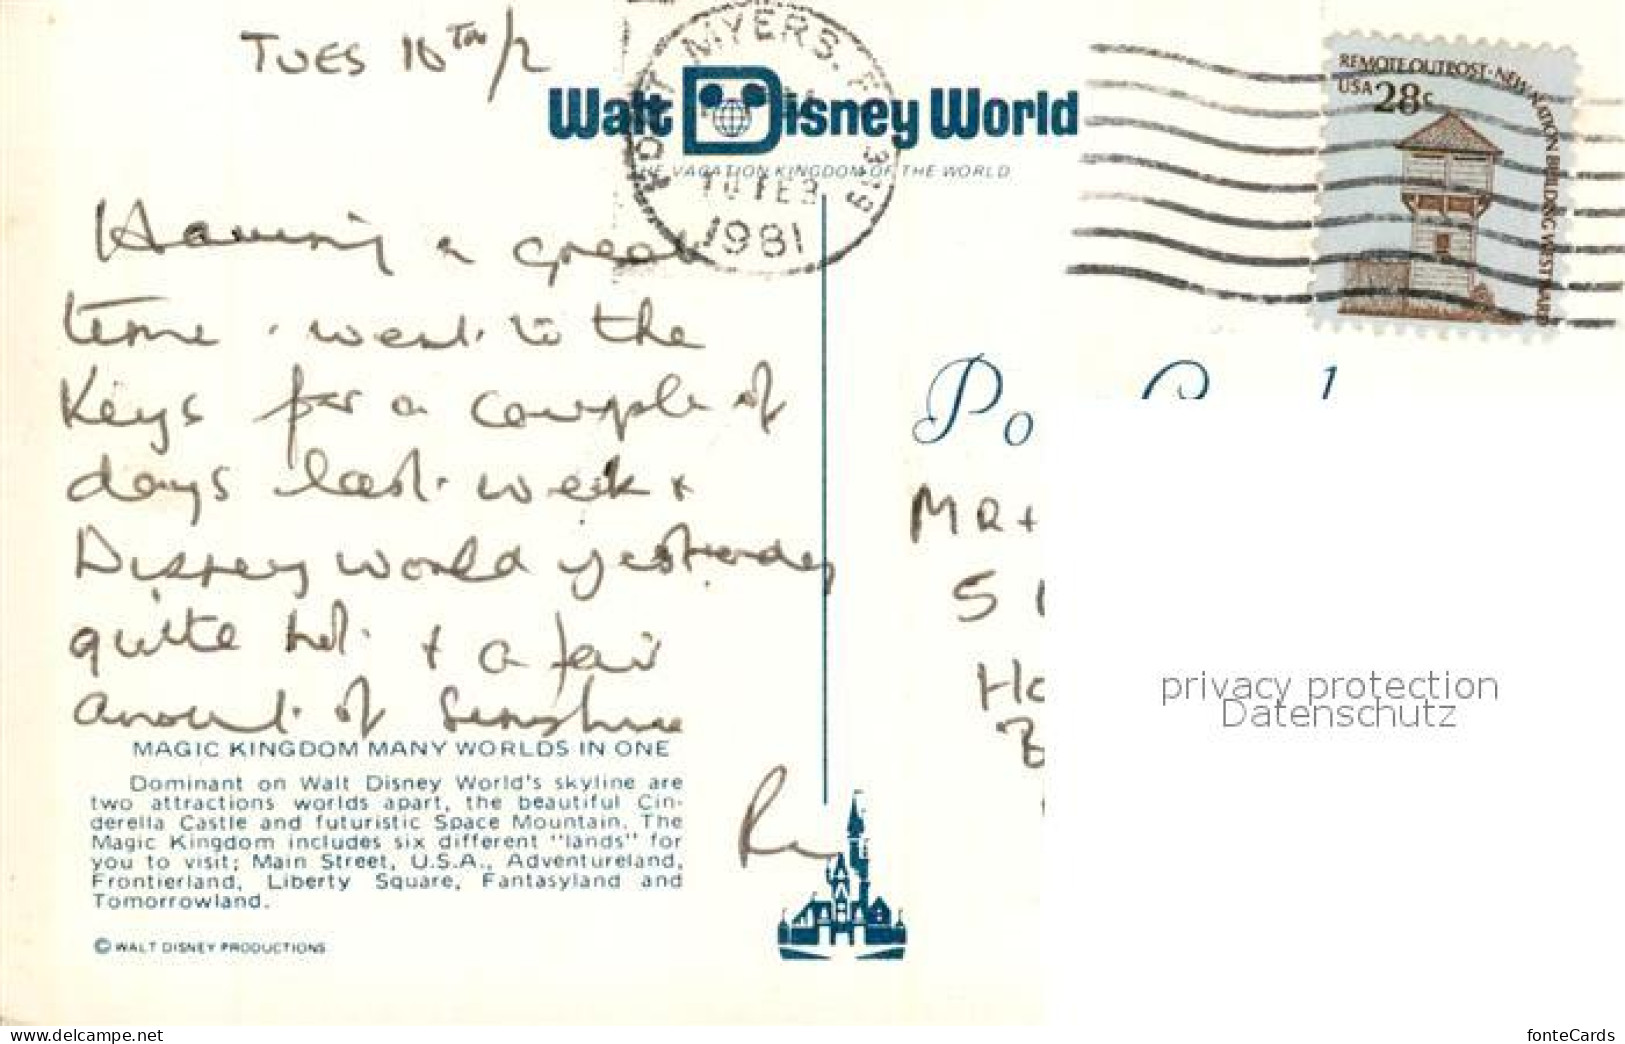 TUES 10TH/2
FORT MYERS. F 339
10 FEB
1981
Walt Disney World
THE VACATION KINGDOM OF THE WORLD
REMOTE OUTPOST · NEW NATION BUILDING WESTWARD
USA 28c
Having a great
time. went to the
Keys for a couple of
days last week +
Disney world yesterday
quite hot. + a fair
amount of Sunshine
MAGIC KINGDOM MANY WORLDS IN ONE
Dominant on Walt Disney World's skyline are
two attractions worlds apart, the beautiful Cin-
derella Castle and futuristic Space Mountain. The
Magic Kingdom includes six different "lands" for
you to visit; Main Street, U.S.A., Adventureland,
Frontierland, Liberty Square, Fantasyland and
Tomorrowland.
© WALT DISNEY PRODUCTIONS
Po
MR +
5
Ho
B
privacy protection
Datenschutz
www.delcampe.net
fonteCards